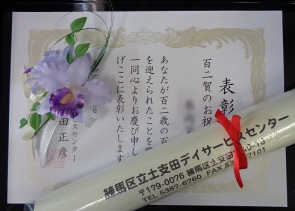 表彰
百二賀のお祝
あなたが百二歳の百
を迎えられたことを
一同心よりお慶び申し
げここに表彰いたします
日
スセンター
田 正彦
練馬区立土支田デイサービスセンター
〒179-0076 練馬区土支田
TEL 5387-6760 FAX